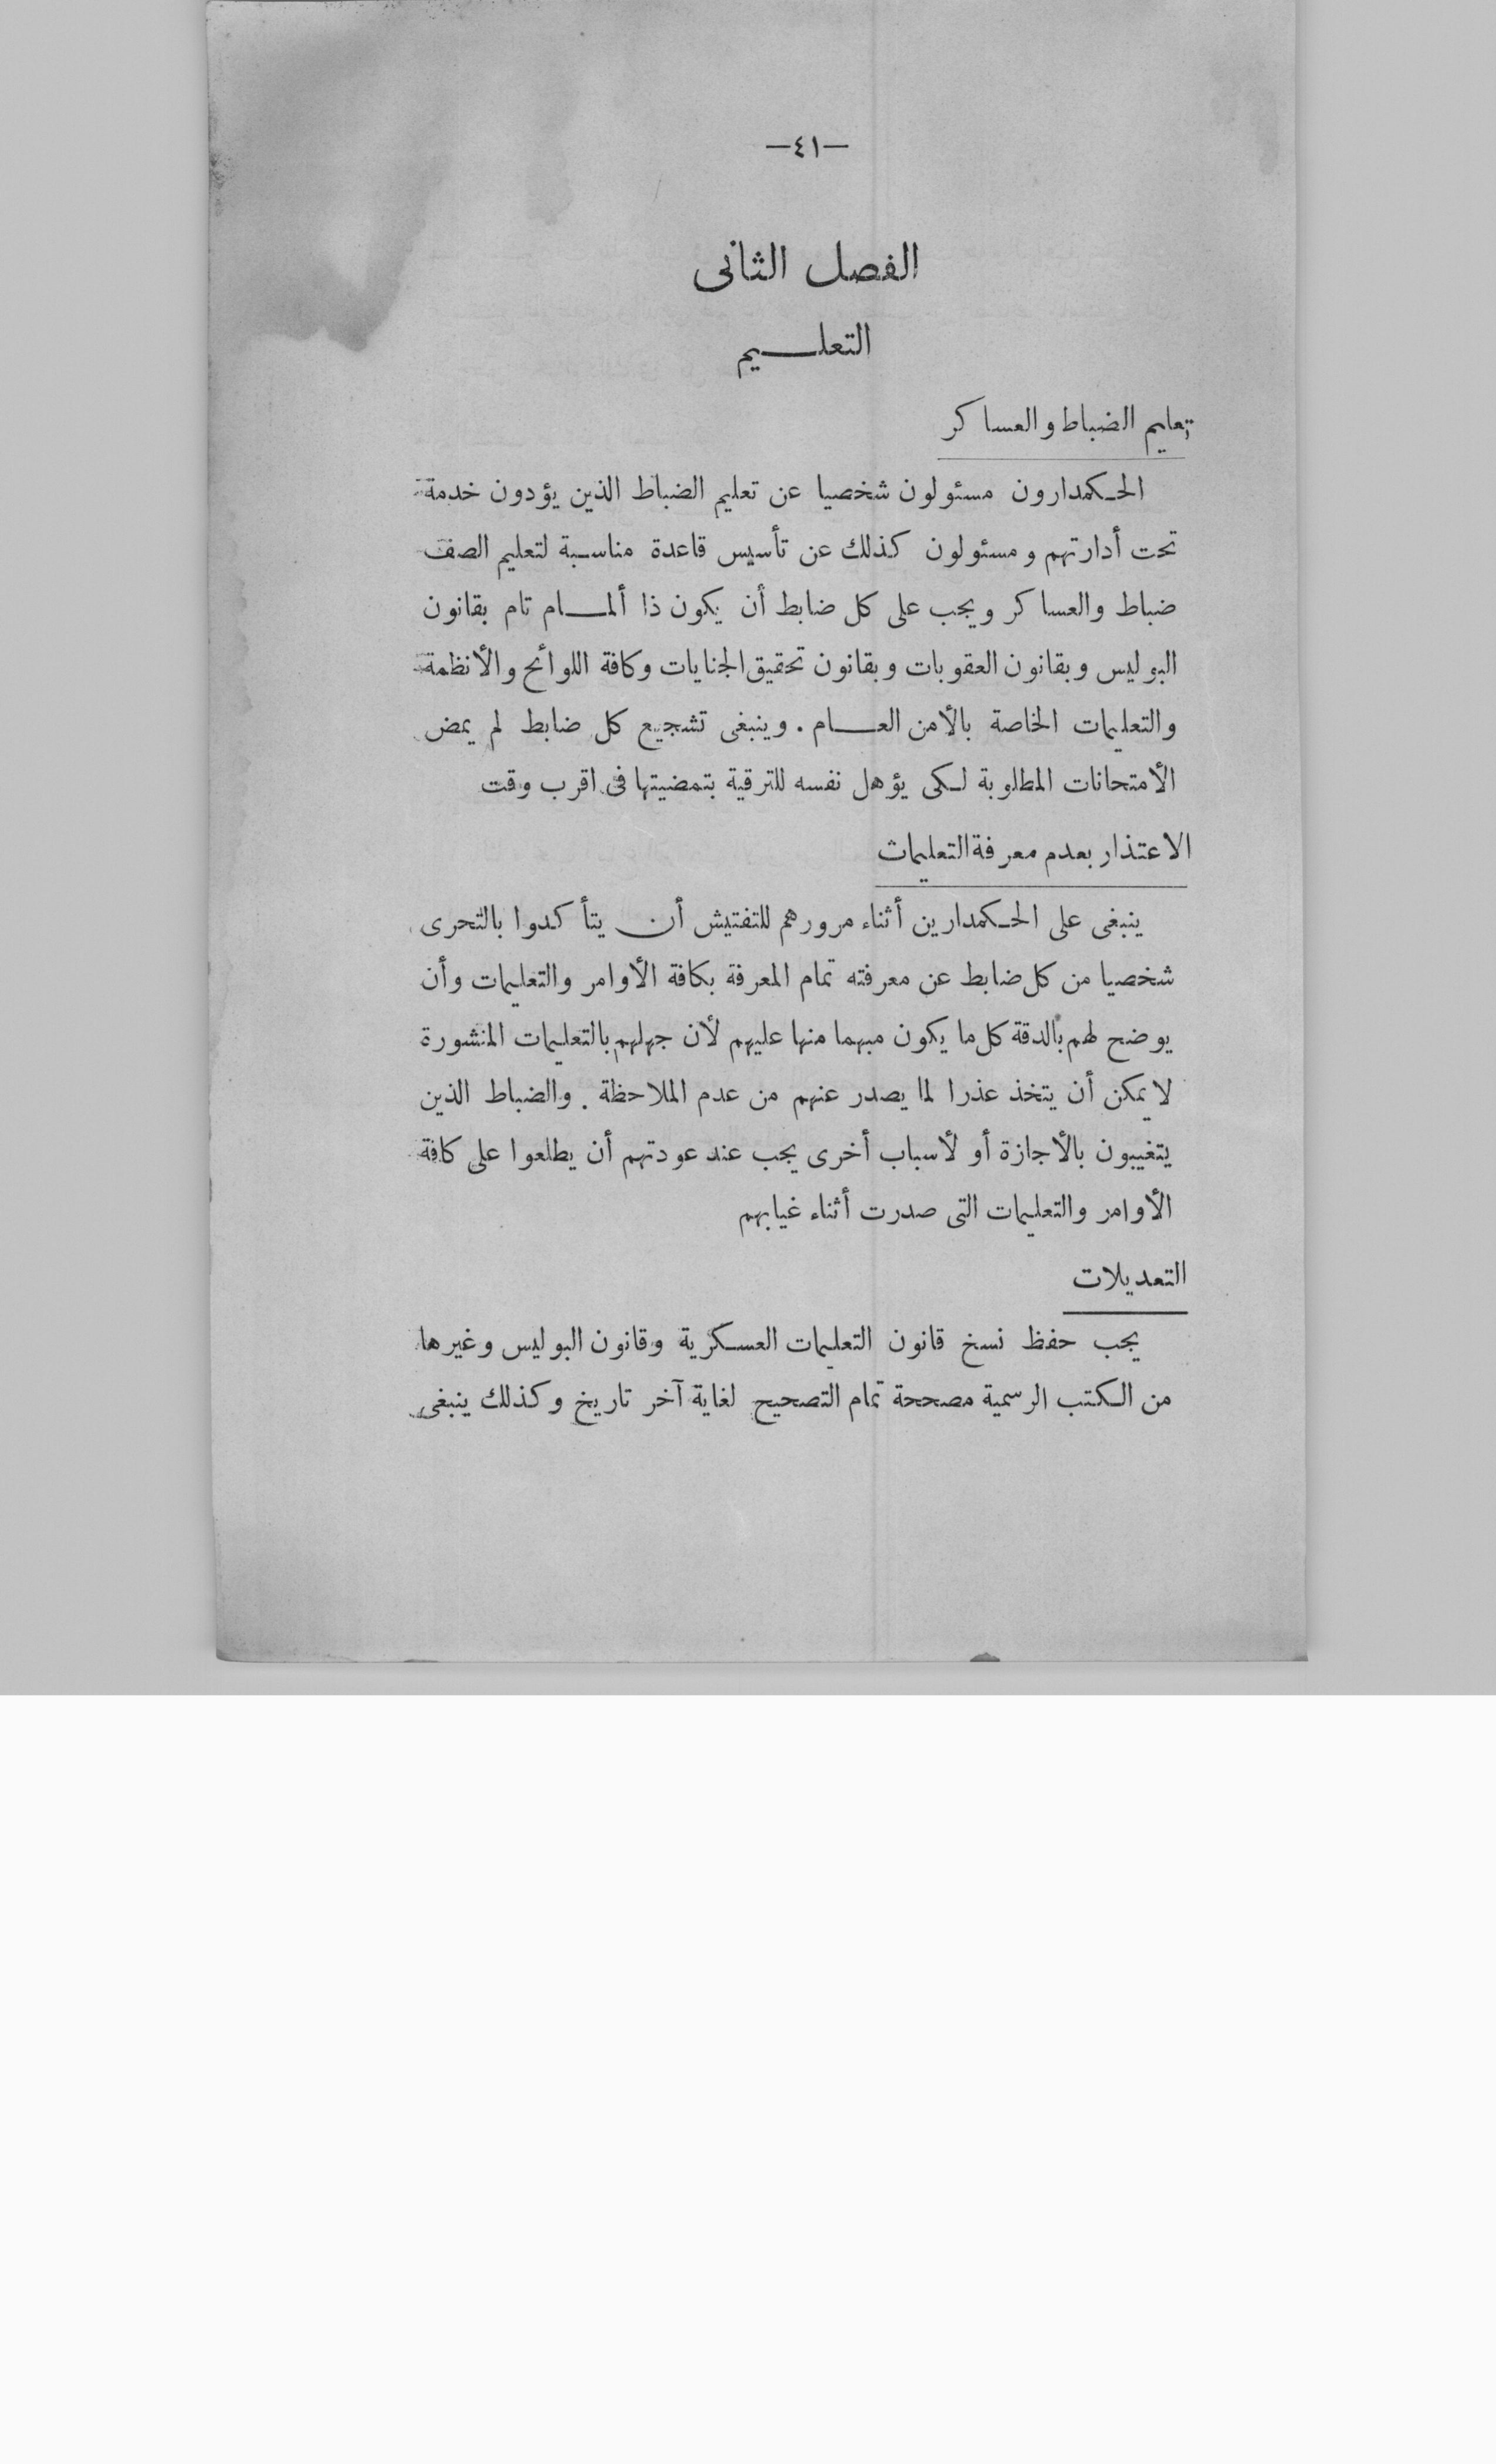 —٤١—
الفصل الثانى
التعليم
تعليم الضباط والعساكر
الحكمدارون مسئولون شخصيا عن تعليم الضباط الذين يؤدون خدمة
تحت أدارتهم ومسئولون كذلك عن تأسيس قاعدة مناسبة لتعليم الصف
ضباط والعساكر ويجب على كل ضابط أن يكون ذا ألمام تام بقانون
البوليس وبقانون العقوبات وبقانون تحقيق الجنايات وكافة اللوائح والأنظمة
والتعليمات الخاصة بالأمن العام . وينبغى تشجيع كل ضابط لم يمض
الأمتحانات المطلوبة لكى يؤهل نفسه للترقية بتمضيتها فى اقرب وقت
الاعتذار بعدم معرفة التعليمات
ينبغى على الحكمدارين أثناء مرورهم للتفتيش أن يتأكدوا بالتحرى
شخصيا من كل ضابط عن معرفته تمام المعرفة بكافة الأوامر والتعليمات وأن
يوضح لهم بالدقة كل ما يكون مبهما منها عليهم لأن جهلهم بالتعليمات المنشورة
لا يمكن أن يتخذ عذرا لما يصدر عنهم من عدم الملاحظة . والضباط الذين
يتغيبون بالأجازة أو لأسباب أخرى يجب عند عودتهم أن يطلعوا على كافة
الأوامر والتعليمات التى صدرت أثناء غيابهم
التعديلات
يجب حفظ نسخ قانون التعليمات العسكرية وقانون البوليس وغيرها
من الكتب الرسمية مصححة تمام التصحيح لغاية آخر تاريخ وكذلك ينبغى